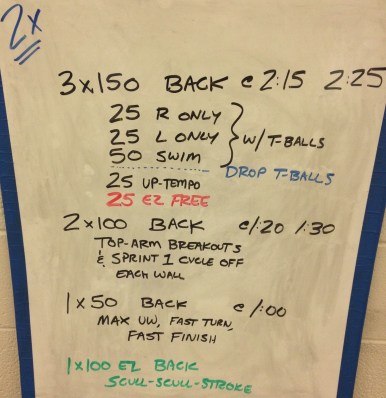 2x
3x150 BACK @ 2:15 2:25
25 R ONLY
25 L ONLY } W/ T-BALLS
50 SWIM
DROP T-BALLS
25 UP-TEMPO
25 EZ FREE
2x100 BACK @ 1:20 1:30
TOP-ARM BREAKOUTS
& SPRINT 1 CYCLE OFF
EACH WALL
1x50 BACK @ 1:00
MAX UW, FAST TURN,
FAST FINISH
1x100 EZ BACK
SCULL-SCULL-STROKE